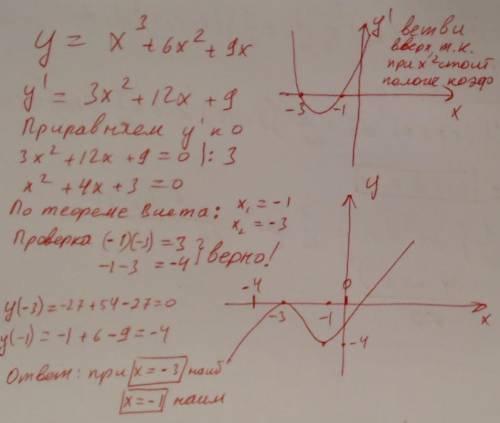 y = x³ + 6x² + 9x
y' = 3x² + 12x + 9
Приравняем y' к 0
3x² + 12x + 9 = 0 |: 3
x² + 4x + 3 = 0
По теореме Виета: x₁ = -1
x₂ = -3
Проверка (-1)(-3) = 3 } верно!
-1 -3 = -4
y(-3) = -27 + 54 - 27 = 0
y(-1) = -1 + 6 - 9 = -4
Ответ: при x = -3 наиб
x = -1 наим
y' ветви
вверх, т.к.
при x² стоит
полож коэф
-3 -1 x
y
-4 -3 -1 0 x
-4